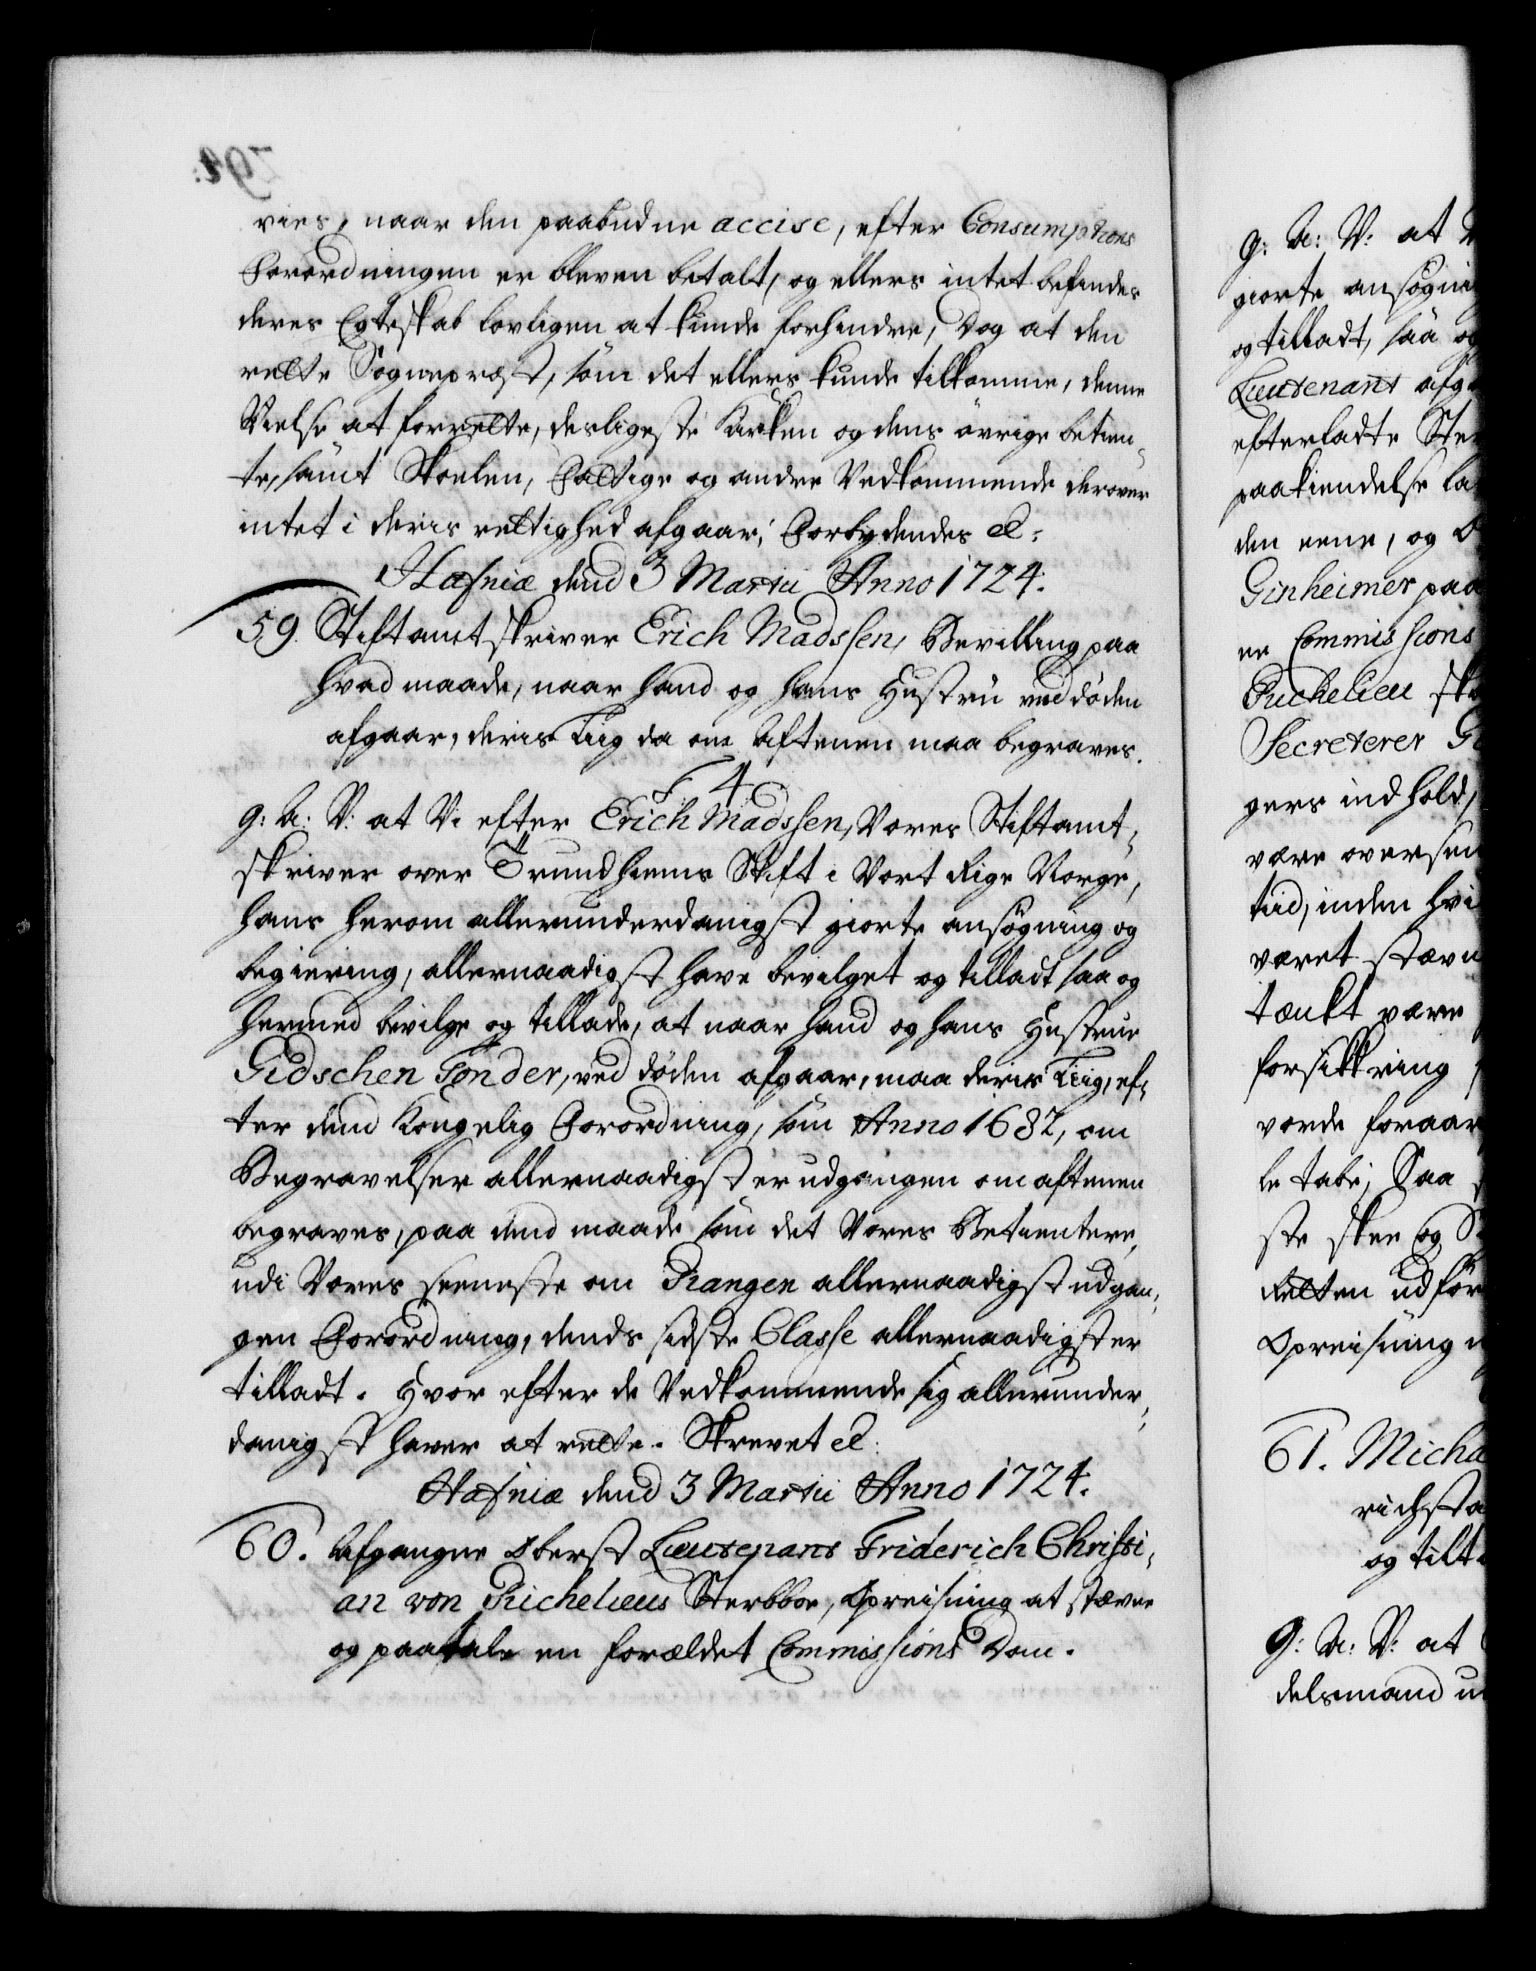 vies, naar den paabudne accise, efter Consumptions
Forordningen er bleven betalt, og ellers intet befindes
deres Egteskab lovligen at kunde forhindre, Dog at den
rette Sognepræst, som det ellers kunde tilkomme, denne
Vielse at forrette, desligeste Kirken og dens øvrige betien-
te, samt Skolen, Fattige og andre Vedkommende derover
intet i deris rettighed afgaar; Forbydendes etc:
Hafniæ dend 3 Martii Anno 1724.
59. Stiftamtskriver Erich Madssen, Bevilling paa
hvad maade, naar hand og hans Hustru ved døden
afgaar, deris Liig da om Aftenen maa begraves.
F 4
G: A: V: at Vi efter Erich Madssen, Vores Stiftamt-
skriver over Trundhiems Stift i Vort Rige Norge,
hans herom allerunderdanigst giorte ansøgning og
begiering, allernaadigst have bevilget og tilladt saa og
hermed bevilge og tillade, at naar hand og hans Hustrue
Gidschen Tønder, ved døden afgaar, maa deris Liig, ef-
ter dend Kongelig Forordning, som Anno 1682, om
Begravelser allernaadigst er udgangen om aftenen
begraves, paa dend maade som det Vores Betientere,
udi Vores seeneste om Rangen allernaadigst udgan-
gen Forordning, dends sidste Classe allernaadigst er
tilladt. Hvor efter de Vedkommende sig allerunder-
danigst haver at rette. Skrevet etc:
Hafniæ dend 3 Martii Anno 1724.
60. Afgangne Oberst Lieutenant Friderich Christi-
an von Richelieus Sterbboe, Opreisning at stævne
og paatale en forældet Commissions Dom.
g: A: V: at
giorte ansøgni
og tilladt, saa og
Lieutenant afg
efterladte Ste
paakiendelse la
den eene, og
Ginheimer paa
en Commissions
Richelieu sk
Secreterer G
gers indhold,
være oversen
tiid, inden hvi
været stævn
tænkt være
forsikkring
vorde foraar
le tabe; Saa
ste skee og
Retten udfør
Opreisning
61. Micha
richsta
og tilt
G: A: V: at
delsmand u